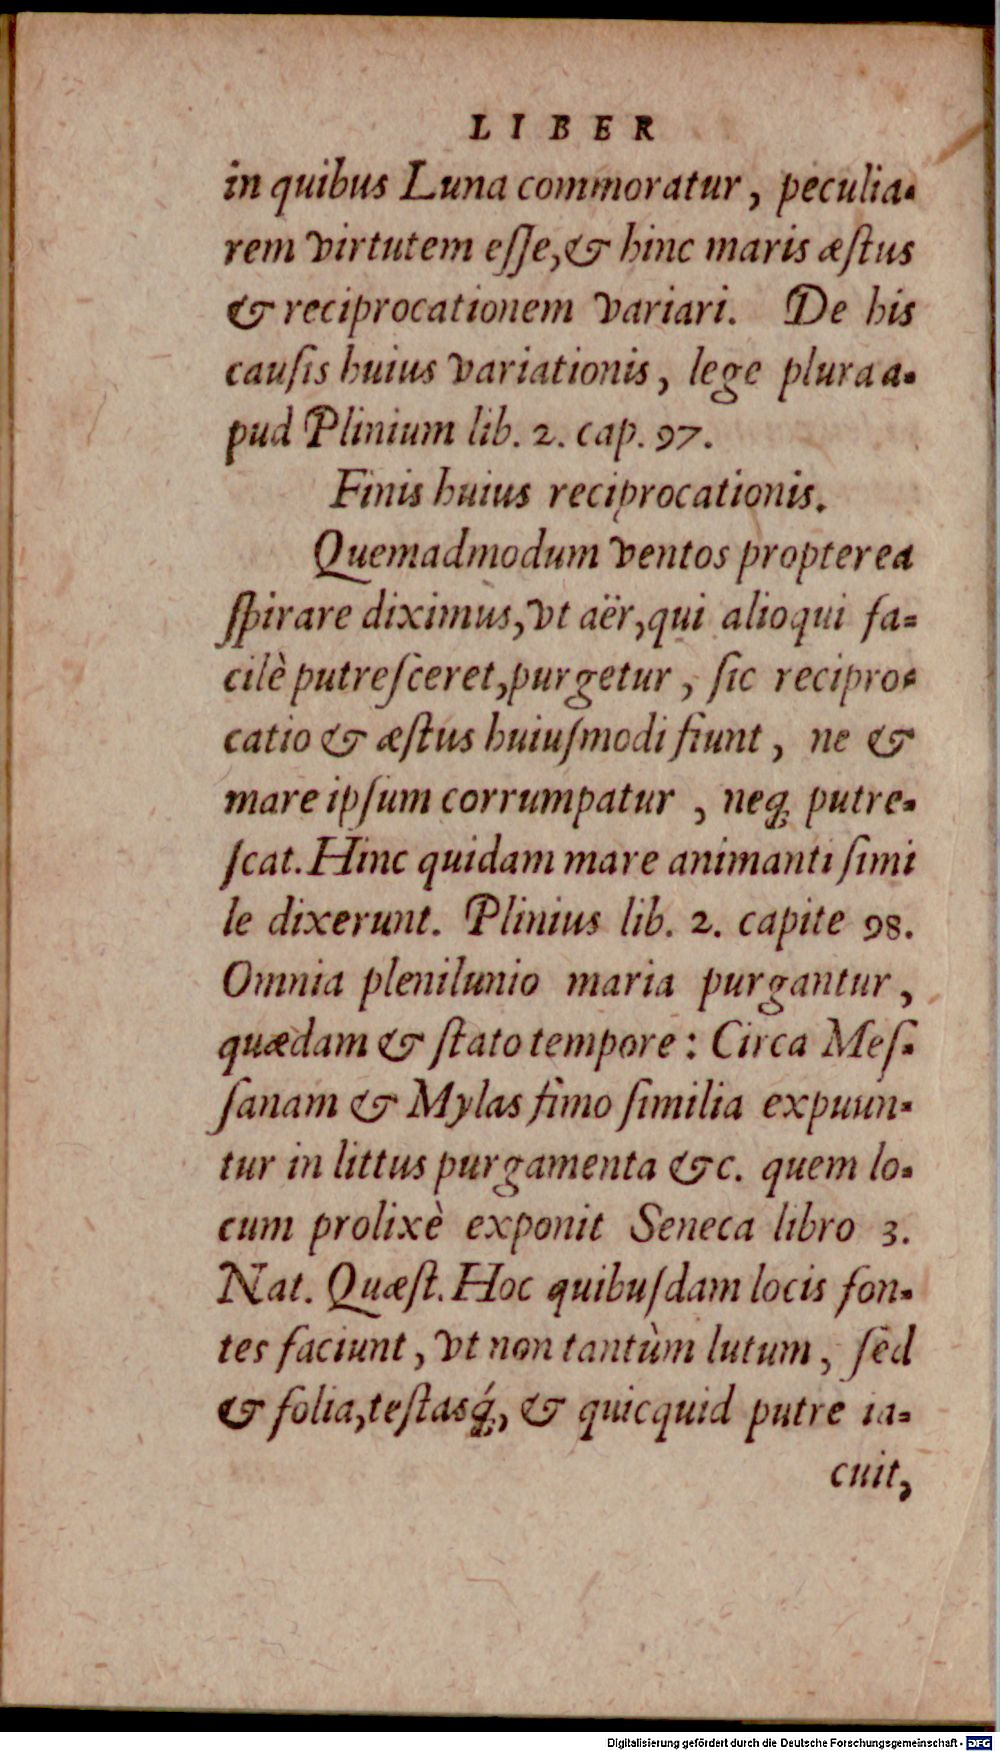 LIBER
in quibus Luna commoratur, peculia-
rem virtutem eſſe, & hinc maris æſtus
& reciprocationem variari. De his
cauſis huius variationis, lege plura a-
pud Plinium lib. 2. cap. 97.
Finis huius reciprocationis.
Quemadmodum ventos propterea
ſpirare diximus, vt aër, qui alioqui fa-
cilè putreſceret, purgetur, ſic recipro-
catio & æſtus huiuſmodi fiunt, ne &
mare ipſum corrumpatur, neq; putre-
ſcat. Hinc quidam mare animanti ſimi
le dixerunt. Plinius lib. 2. capite 98.
Omnia plenilunio maria purgantur,
quædam & ſtato tempore: Circa Meſ-
ſanam & Mylas fimo ſimilia expuun-
tur in littus purgamenta &c. quem lo-
cum prolixè exponit Seneca libro 3.
Nat. Quæſt. Hoc quibuſdam locis fon-
tes faciunt, vt non tantùm lutum, ſed
& folia, teſtasq́;, & quicquid putre ia-
cuit,
Digitalisierung gefördert durch die Deutsche Forschungsgemeinschaft - DFG